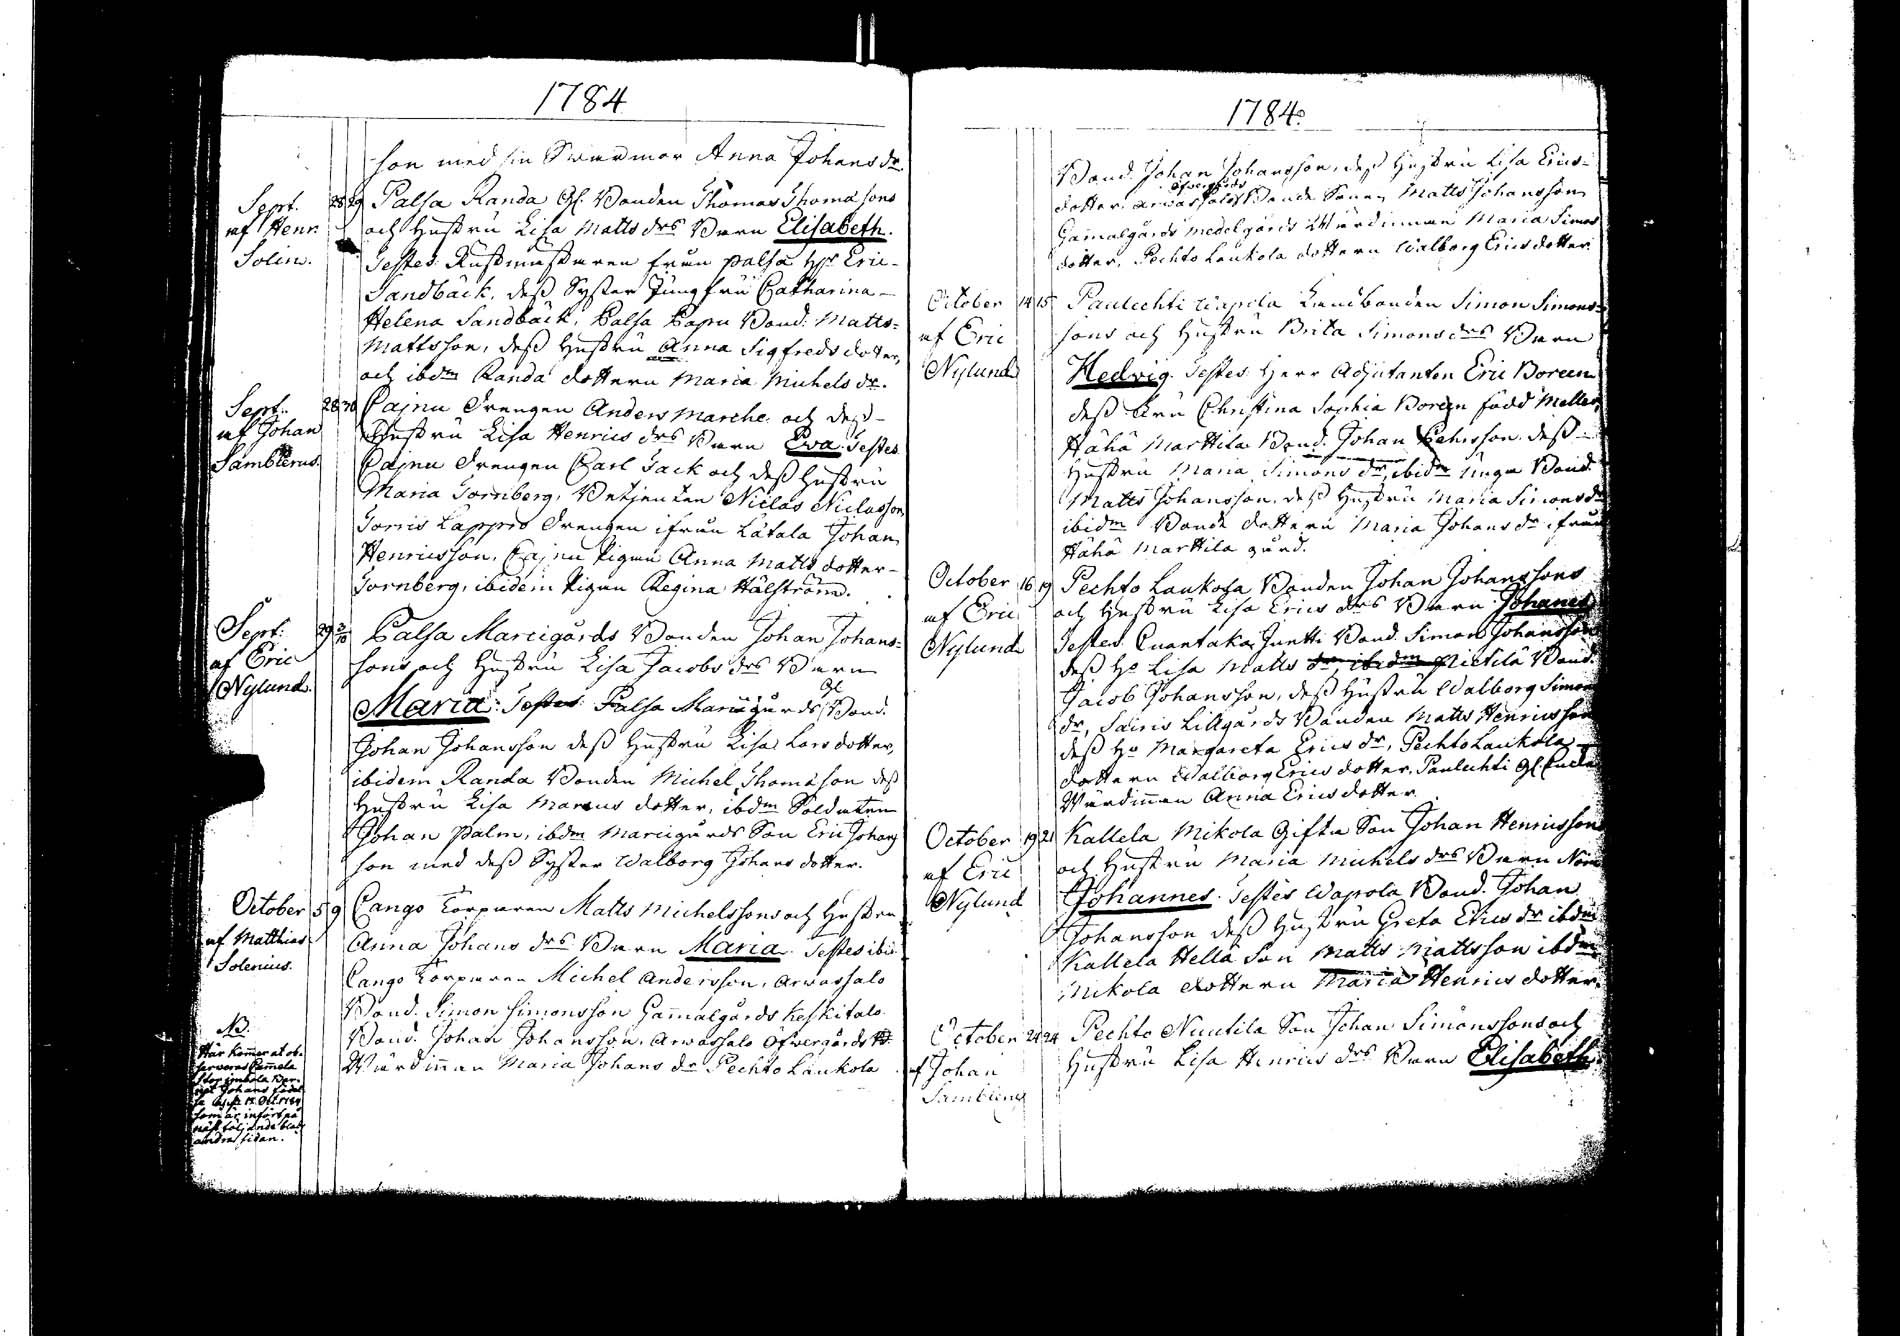 1784
son med sin Swärmor Anna Johans dr.
Sept. 28 29 Palsa Randa Gl. Bonden Thomas Thomasons
af Henr. och Hustru Lisa Matts drs Barn Elisabeth.
Solin. Testes Rustmästaren från Palsa Hr Eric
Sandbäck, dess Syster Jungfru Catharina
Helena Sandbäck, Palsa Papu Bond. Matts
Mattsson, dess Hustru Anna Sigfredsdotter,
och ibdm Randa dottern Maria Michels dr.
Sept. 28 30 Cajnu Drengen Anders Marche och dess
af Johan Hustru Lisa Henrics drs Barn Eva. Testes
Samblerus. Cajnu Drengen Carl Tack och dess Hustru
Maria Tornberg, Betjenten Niclas Niclasson,
Torris Lappio Drengen ifrån Lätala Johan
Henricsson, Cajnu Pigan Anna Matts dotter
Tornberg, ibidem Pigan Regina Hälström.
Sept. 29 3/10 Palsa Marcigårds Bonden Johan Johans=
af Eric sons och Hustru Lisa Jacobs drs Barn
Nylund. Maria: Testes Palsa Marcigårds Gl. Bond.
Johan Johansson dess Hustru Lisa Larsdotter,
ibidem Randa Bonden Michel Thomason dess
Hustru Lisa Marcus dotter, ibdm Soldaten
Johan Palm, ibdm Marcigårds Son Eric Johans
son med dess Syster Walborg Johans dotter.
October 5 9 Cango Torparen Matts Michelssons och Hustru
af Matthias Anna Johans drs Barn Maria. Testes ibid.
Solenius. Cango Torparen Michel Andersson, Arwassalo
Bond. Simon Simonsson Gamalgårds Keskitalo
Bond. Johan Johansson, Arwassalo Öfwergårds
Wärdinnan Maria Johans dr Pechto Laukola
NB.
Här kommer at ob=
serveras
Johans födel
se 15 Oct. 1784
som är infört på
näst följande blad
andra sidan.
1784.
Bond. Johan Johansson, dess Hustru Lisa Erics=
dotter, Arwassalo Öfwergårds Bonde Sonen Matts Johansson
Gamalgårds Medelgårds Wärdinnan Maria Simons
dotter, Pechto Laukola dottern Walborg Ericsdotter.
October 14 15 Paulechti Wapola Landbonden Simon Simons=
af Eric sons och Hustru Brita Simons drs Barn
Nylund Hedvig. Testes Herr Adjutanten Eric Boreen
dess Fru Christina Sophia Boreen född Meller,
Hähä Marttila Bond. Johan dess
Hustru Maria Simons dr, ibidm unga Bond.
Matts Johansson, dess Hustru Maria Simonsdr
ibidm Bonde dottern Maria Johans dr ifrån
Hähä Marttila gård.
October 16 19 Pechto Laukola Bonden Johan Johanssons
af Eric och Hustru Lisa Erics drs Barn Johannes
Nylund Testes Cuantaka Juntti Bond. Simon Johansson
dess Ho Lisa Matts dr ibidm Pietilä Bond.
Jacob Johansson, dess Hustru Walborg Simons
dr, Sairis Lillgårds Bonden Matts Henricsson
dess Ho Margareta Erics dr, Pechto Laukola
dottern Walborg Ericsdotter, Paulechti Gl.
Wärdinnan Anna Ericsdotter.
October 19 21 Kallela Mikola Gifta Son Johan Henricssons
af Eric och Hustru Maria Michels drs Barn
Nylund Johannes. Testes Wapola Bond. Johan
Johansson dess Hustru Greta Erics dr ibdm
Kallela Hellä Son Matts Mattsson ibdm
Mikola dottern Maria Henrics dotter.
October 24 24 Pechto Nuutila Son Johan Simonssons och
af Johan Hustru Lisa Henrics drs Barn Elisabeth.
Samblerus